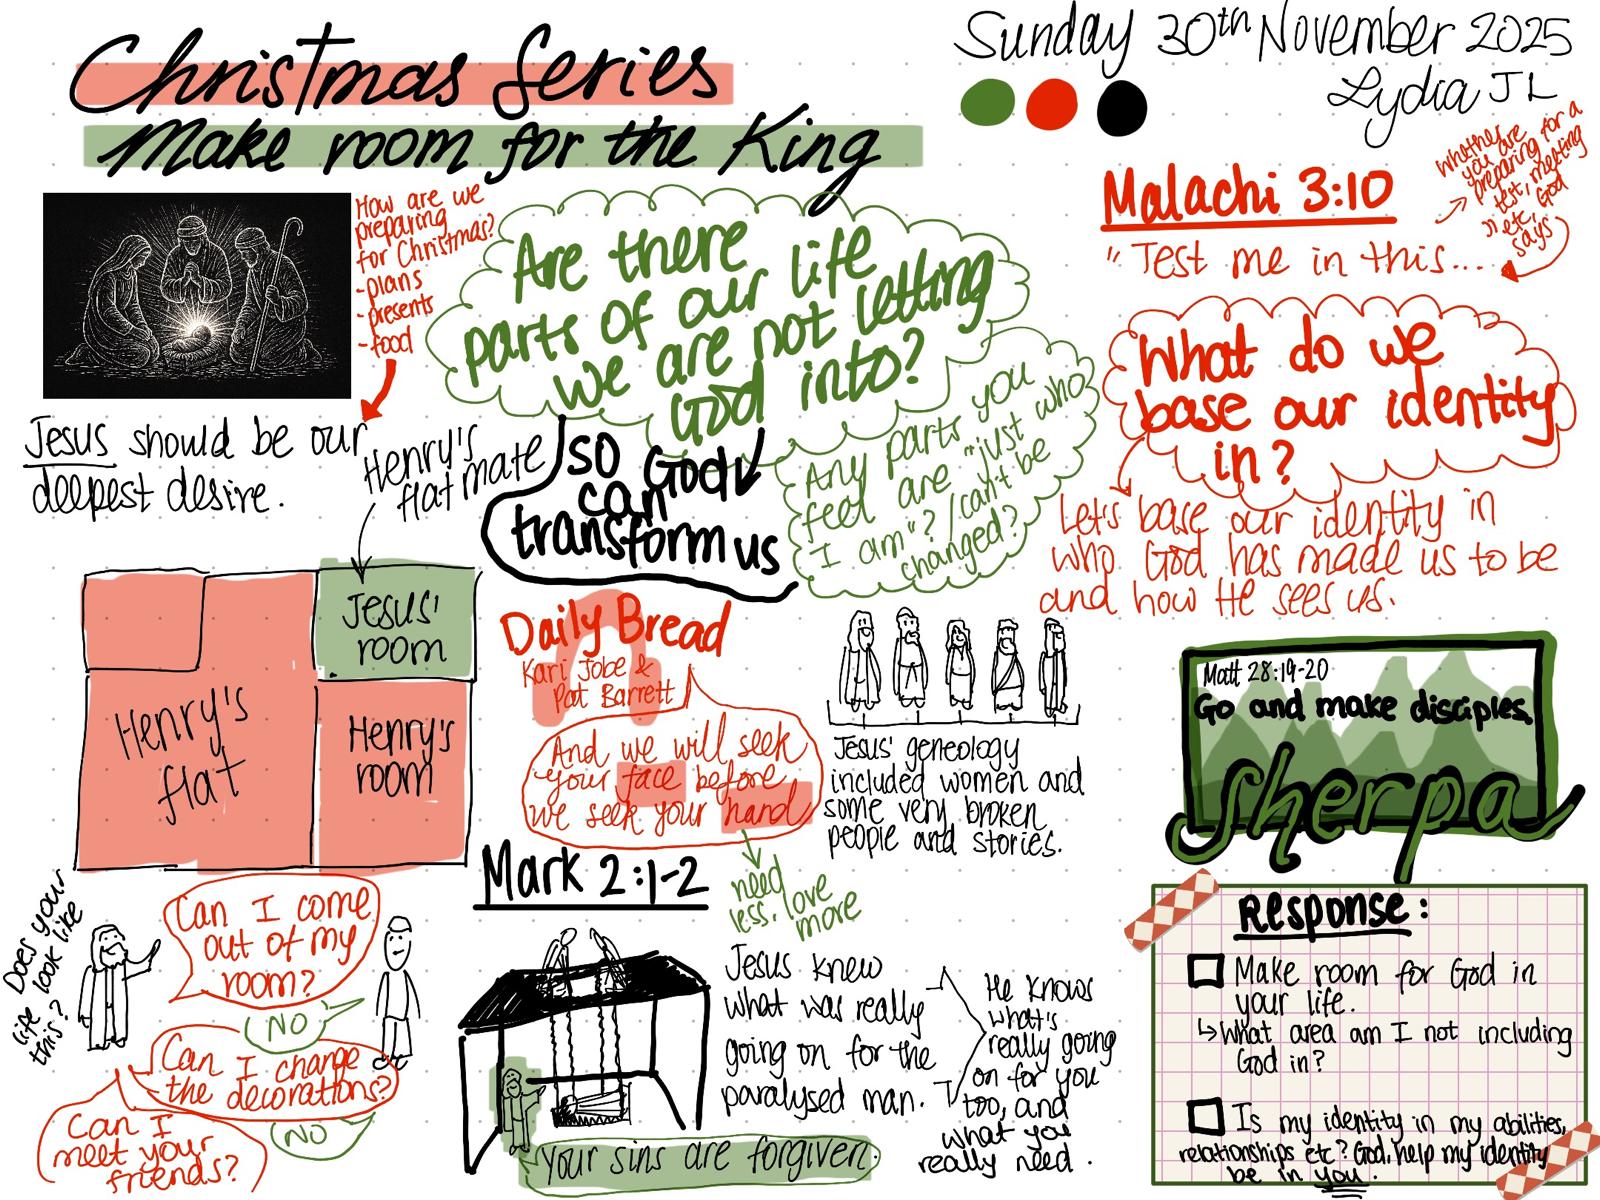 Christmas Series
Make room for the King
Sunday 30th November 2025
Lydia J L
How are we
preparing
for Christmas?
-plans
-presents
-food
Jesus should be our
deepest desire.
Are there
parts of our life
we are not letting
God into?
so God
can
transform us
Any parts you
feel are "just who
I am"? / can't be
changed?
Malachi 3:10
"Test me in this...
whether
you are
preparing for a
test, meeting
etc, God
says
What do we
base our identity
in?
Let's base our identity in
who God has made us to be
and how He sees us.
Henry's
flat mate
Jesus'
room
Henry's
flat
Henry's
room
Does your
life look like
this?
Can I come
out of my
room?
NO
Can I change
the decorations?
NO
Can I
meet your
friends?
Daily Bread
Kari Jobe &
Pat Barrett
And we will seek
your face before
we seek your hand
need
less, love
more
Jesus' geneology
included women and
some very broken
people and stories.
Mark 2:1-2
your sins are forgiven.
Jesus knew
what was really
going on for the
paralysed man.
He knows
what's
really going
on for you
too, and
what you
really need.
Matt 28:19-20
Go and make disciples.
Sherpa
Response:
Make room for God in
your life.
↳What area am I not including
God in?
Is my identity in my abilities,
relationships etc? God, help my identity
be in you.